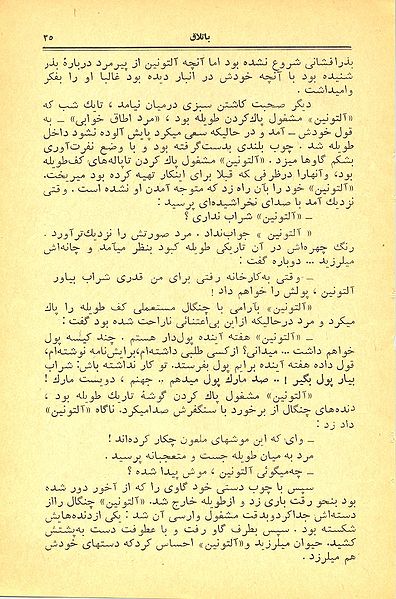 باتلاق
۳۵
بذرافشانی شروع نشده بود اما آنچه آلتونین از پیرمرد دربارهٔ بذر
شنیده بود با آنچه خودش در انبار دیده بود غالبا او را بفکر
وامیداشت .
دیگر صحبت کاشتن سبزی درمیان نیامد ، تایك شب که
«آلتونین» مشغول پاك‌کردن طویله بود ، «مرد اطاق خوابی» ــ به
قول خودش ــ آمد و در حالیکه سعی میکرد پایش آلوده نشود داخل
طویله شد . چوب بلندی بدست‌گرفته بود و با وضع نفرت‌آوری
بشکم گاوها میزد . «آلتونین» مشغول پاك کردن تاپاله‌های کف‌طویله
بود، وآنهارا درظرفی که قبلا برای اینکار تهیه کرده بود میریخت.
«آلتونین» خود را بآن راه زد که متوجه آمدن او نشده است . وقتی
نزدیك آمد با صدای نخراشیده‌ای پرسید :
ــ «آلتونین» شراب نداری ؟
« آلتونین » جواب‌نداد . مرد صورتش را نزدیك‌ترآورد .
رنگ چهره‌اش در آن تاریکی طویله کبود بنظر میآمد و چانه‌اش
میلرزید ... دوباره گفت :
ــ وقتی به‌کارخانه رفتی برای من قدری شراب بیاور
آلتونین ، پولش را خواهم داد !
«آلتونین» بآرامی با چنگال مستعملی کف طویله را پاك
میکرد و مرد درحالیکه ازاین بی‌اعتنائی ناراحت شده بود گفت :
ــ «آلتونین» هفته آینده پول‌دار هستم . چند کیسه پول
خواهم داشت ... میدانی؟ ازکسی طلبی داشته‌ام،برایش‌نامه نوشته‌ام،
قول داده هفته آینده برایم پول بفرستد. تو کار نداشته باش: شراب
بیار پول بگیر ! .. صد مارك پول میدهم .. جهنم ، دویست مارك !
«آلتونین» مشغول پاك کردن گوشهٔ تاریك طویله بود ،
دنده‌های چنگال از برخورد با سنگفرش صدامیکرد. ناگاه «آلتونین»
داد زد :
ــ وای که این موشهای ملعون چکار کرده‌اند !
مرد به میان طویله جست و متعجبانه پرسید .
ــ چه‌میگوئی آلتونین ، موش پیدا شده ؟
سپس با چوب دستی خود گاوی را که از آخور دور شده
بود بنحو رقت باری زد و ازطویله خارج شد. «آلتونین» چنگال رااز
دسته‌اش جداکردوبدقت مشغول وارسی آن شد : یکی ازدنده‌هایش
شکسته بود . سپس بطرف گاو رفت و با عطوفت دست به‌پشتش
کشید. حیوان میلرزید و«آلتونین» احساس کردکه دستهای خودش
هم میلرزد .